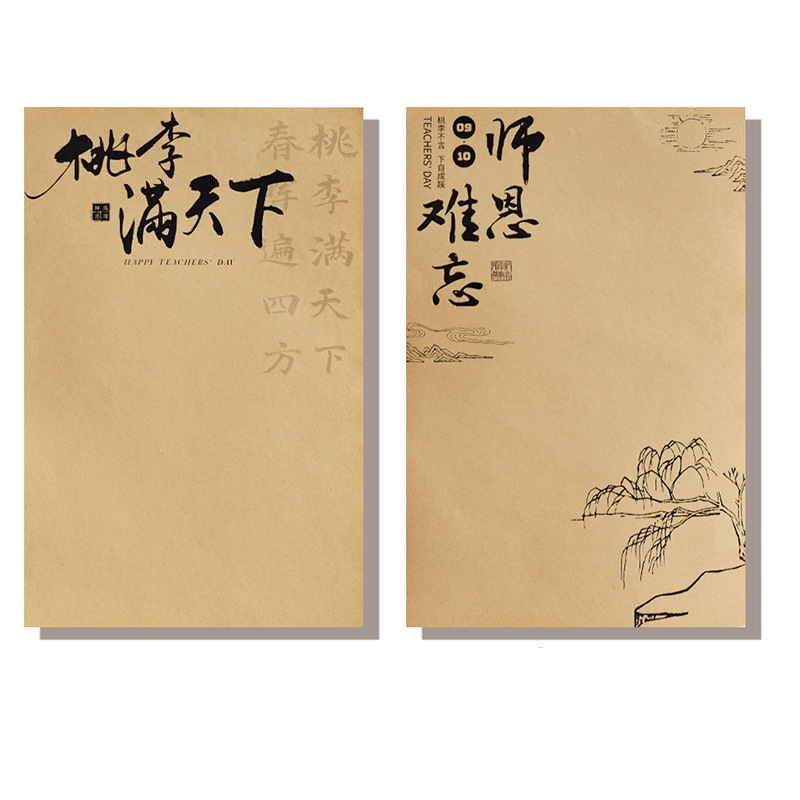 桃李
满天下
HAPPY TEACHERS' DAY
桃李满天下
春晖遍四方
师恩
难忘
09·10
桃李不言 下自成蹊
TEACHERS' DAY